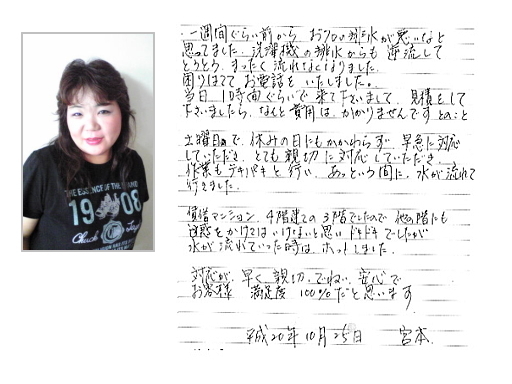 一週間ぐらい前から お風呂の排水が悪いなと
思ってました。洗濯機の排水からも 逆流して
とうとう、まったく流れなくなりました。
困りはてて お電話を いたしました。
当日 1時間ぐらいで 来て下さいまして、見積をして
下さいましたら、なんと費用は かかりませんです とのこと
土曜日で、休みの日にもかかわらず 早急に対応
していただき、とても親切に対応していただき
作業もテキパキと行い、あっという間に、水が流れて
行きました。
賃借マンション、4階建ての3階でしたので 他の階にも
迷惑をかけてはいけないと思い ドキドキでしたが
水が流れていった時は、ホットしました。
対応が、早く親切、ていねい 安心で
お客様 満足度 100%だと思います
平成20年10月25日 宮本
THE ESSENCE OF THE
1908
Chuck